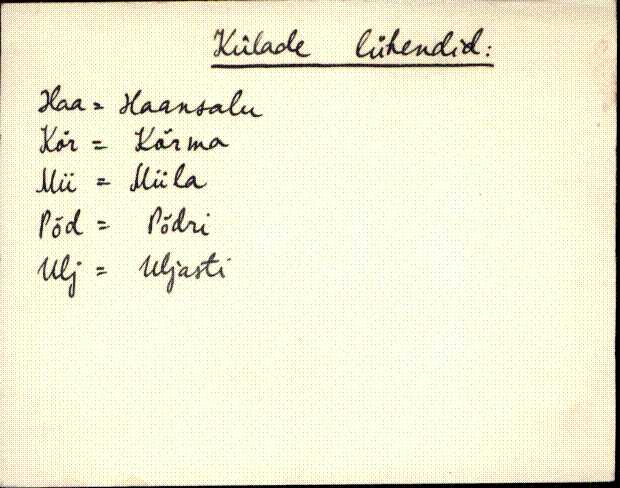 Külade lühendid:
Haa = Haansalu
Kõr = Kõrma
Mii = Miila
Põd = Põdri
Ulj = Uljasti